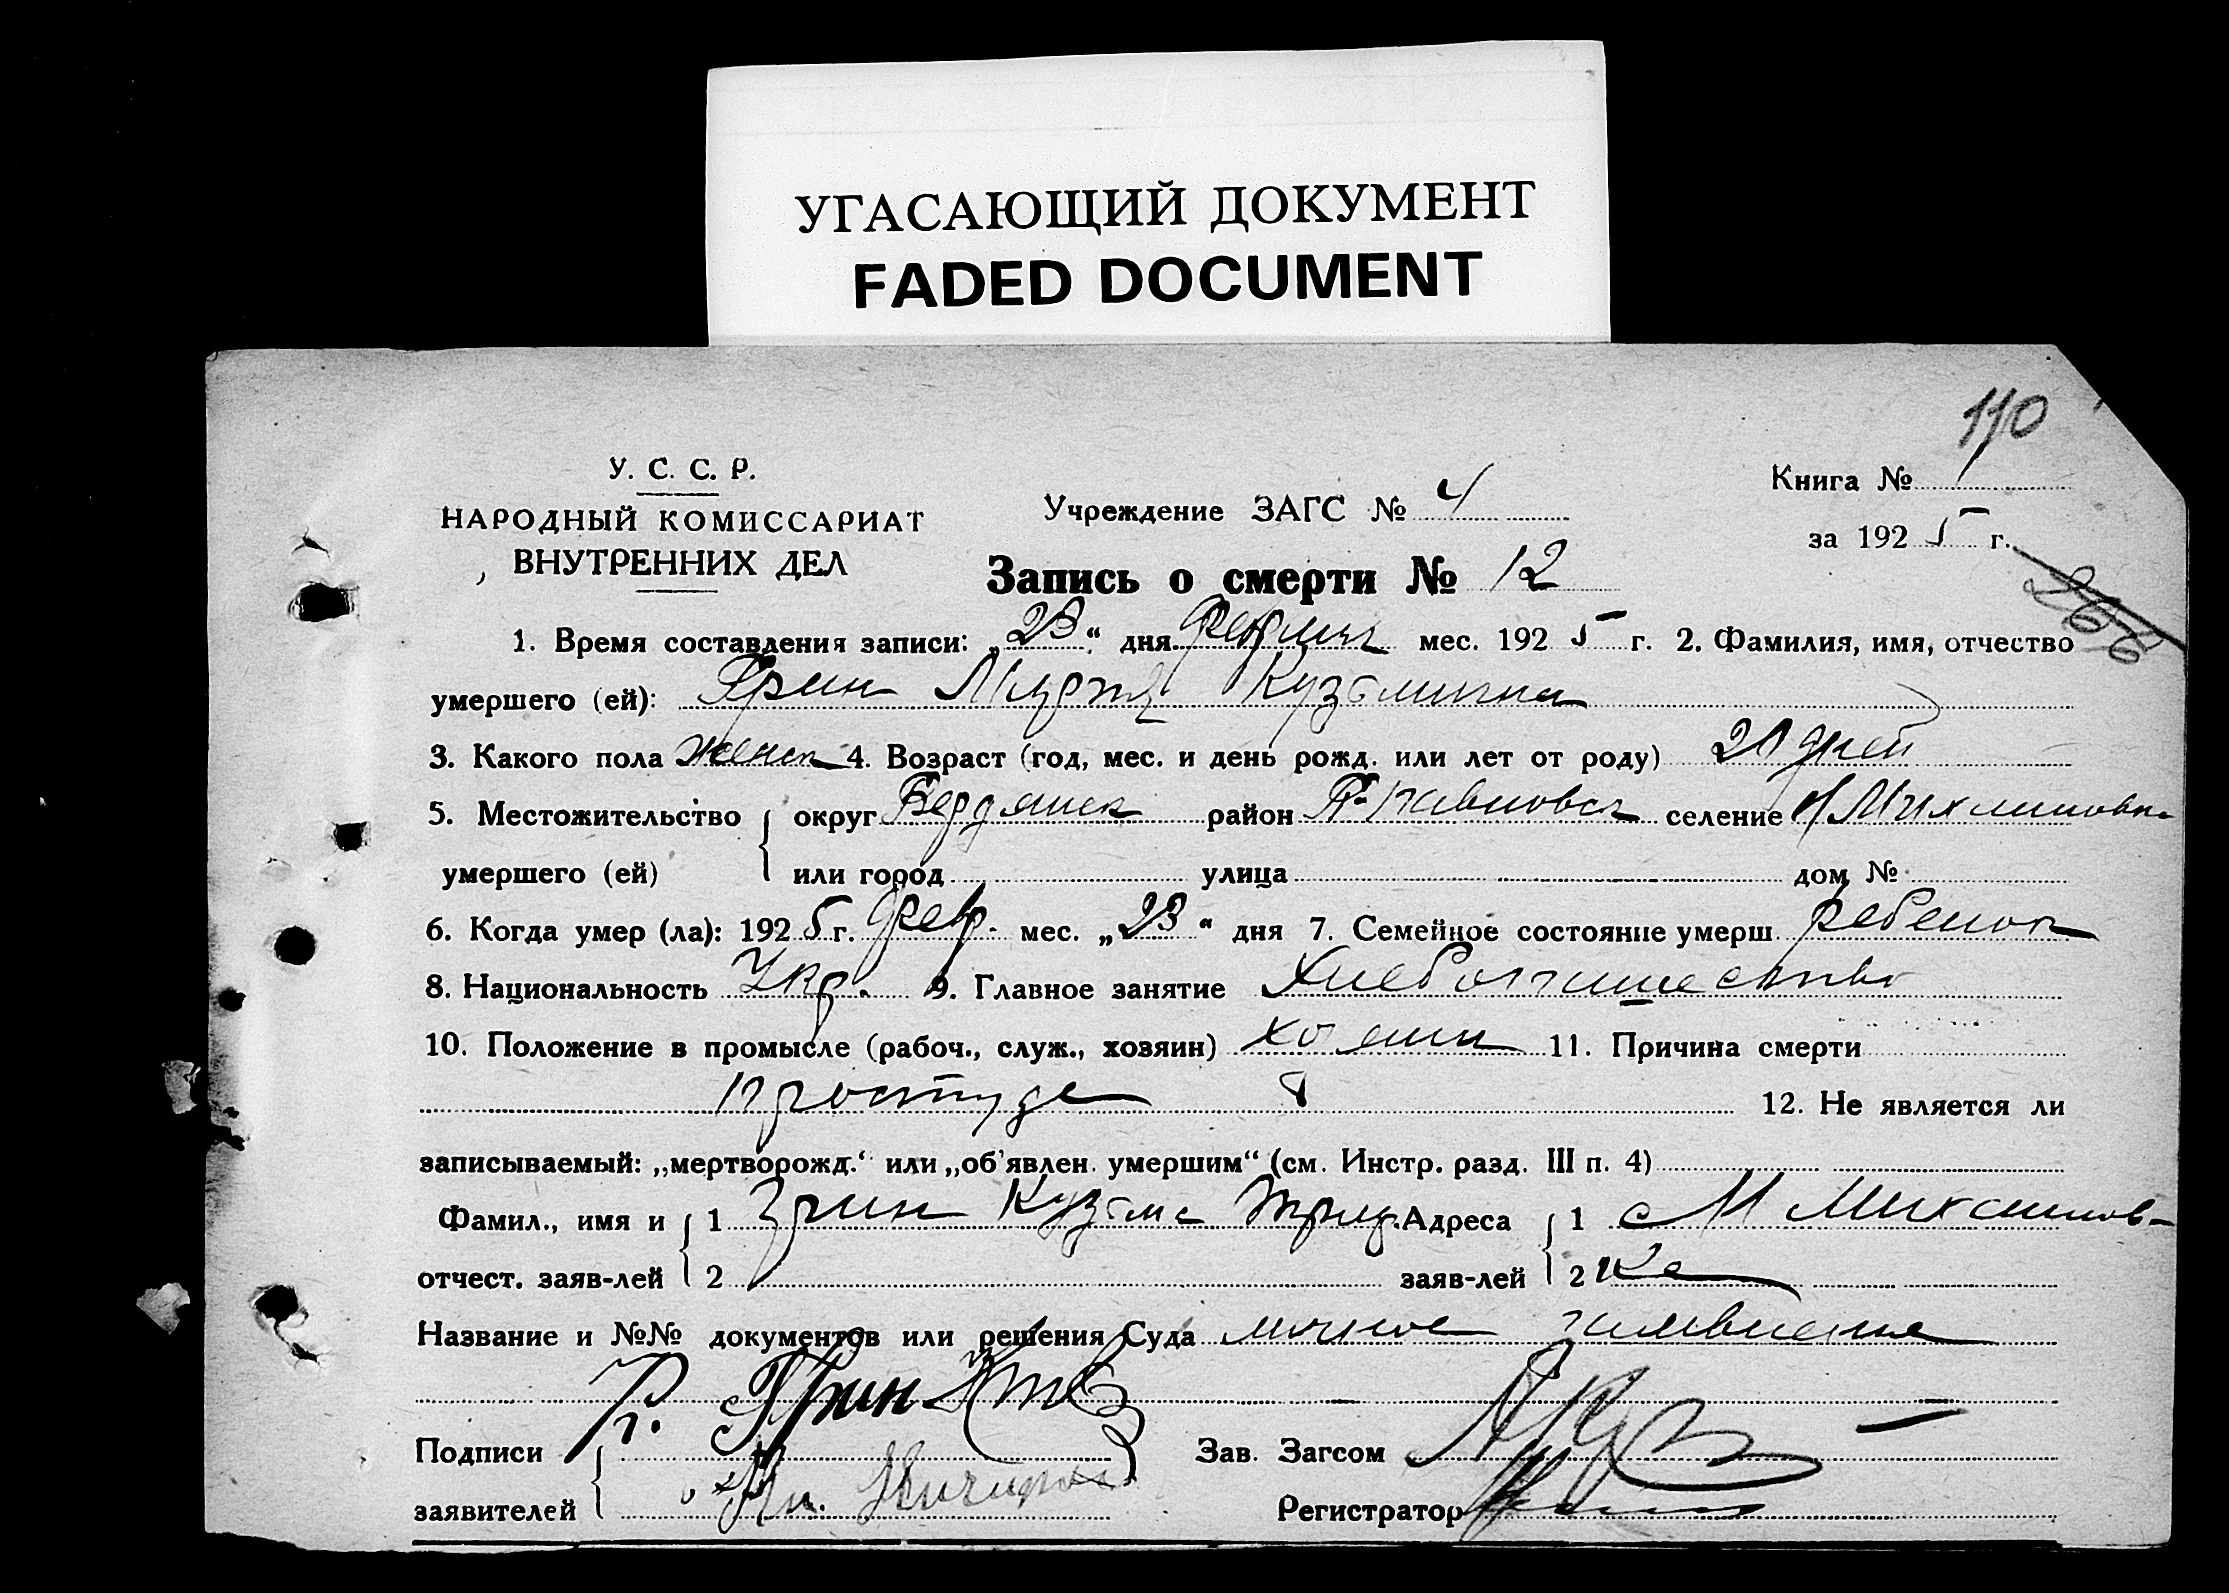 УГАСАЮЩИЙ ДОКУМЕНТ
FADED DOCUMENT
110
У. С. С. Р.
НАРОДНЫЙ КОМИССАРИАТ
ВНУТРЕННИХ ДЕЛ
Учреждение ЗАГС № 4
Книга № 1
за 1925 г.
266
Запись о смерти № 12
1. Время составления записи: „23“ дня мес. 1925 г. 2. Фамилия, имя, отчество
умершего (ей): Грин Кузьминична
3. Какого пола женск 4. Возраст (год, мес. и день рожд. или лет от роду) 20 дней
5. Местожительство округ Бердянск район селение
умершего (ей) или город улица дом №
6. Когда умер (ла): 1925 г. февр. мес. „23“ дня 7. Семейное состояние умерш. ребенок
8. Национальность Укр. 9. Главное занятие Хлебопашество
10. Положение в промысле (рабоч., служ., хозяин) хозяин 11. Причина смерти
простуда
12. Не является ли
записываемый: „мертворожд.“ или „об'явлен. умершим“ (см. Инстр. разд. III п. 4)
Фамил., имя и 1 Грин Кузьма Адреса 1 с М
отчест. заяв-лей 2 заяв-лей 2 ке
Название и №№ документов или решения Суда личное заявление
Гр. Грин
Подписи Зав. Загсом
заявителей Регистратор